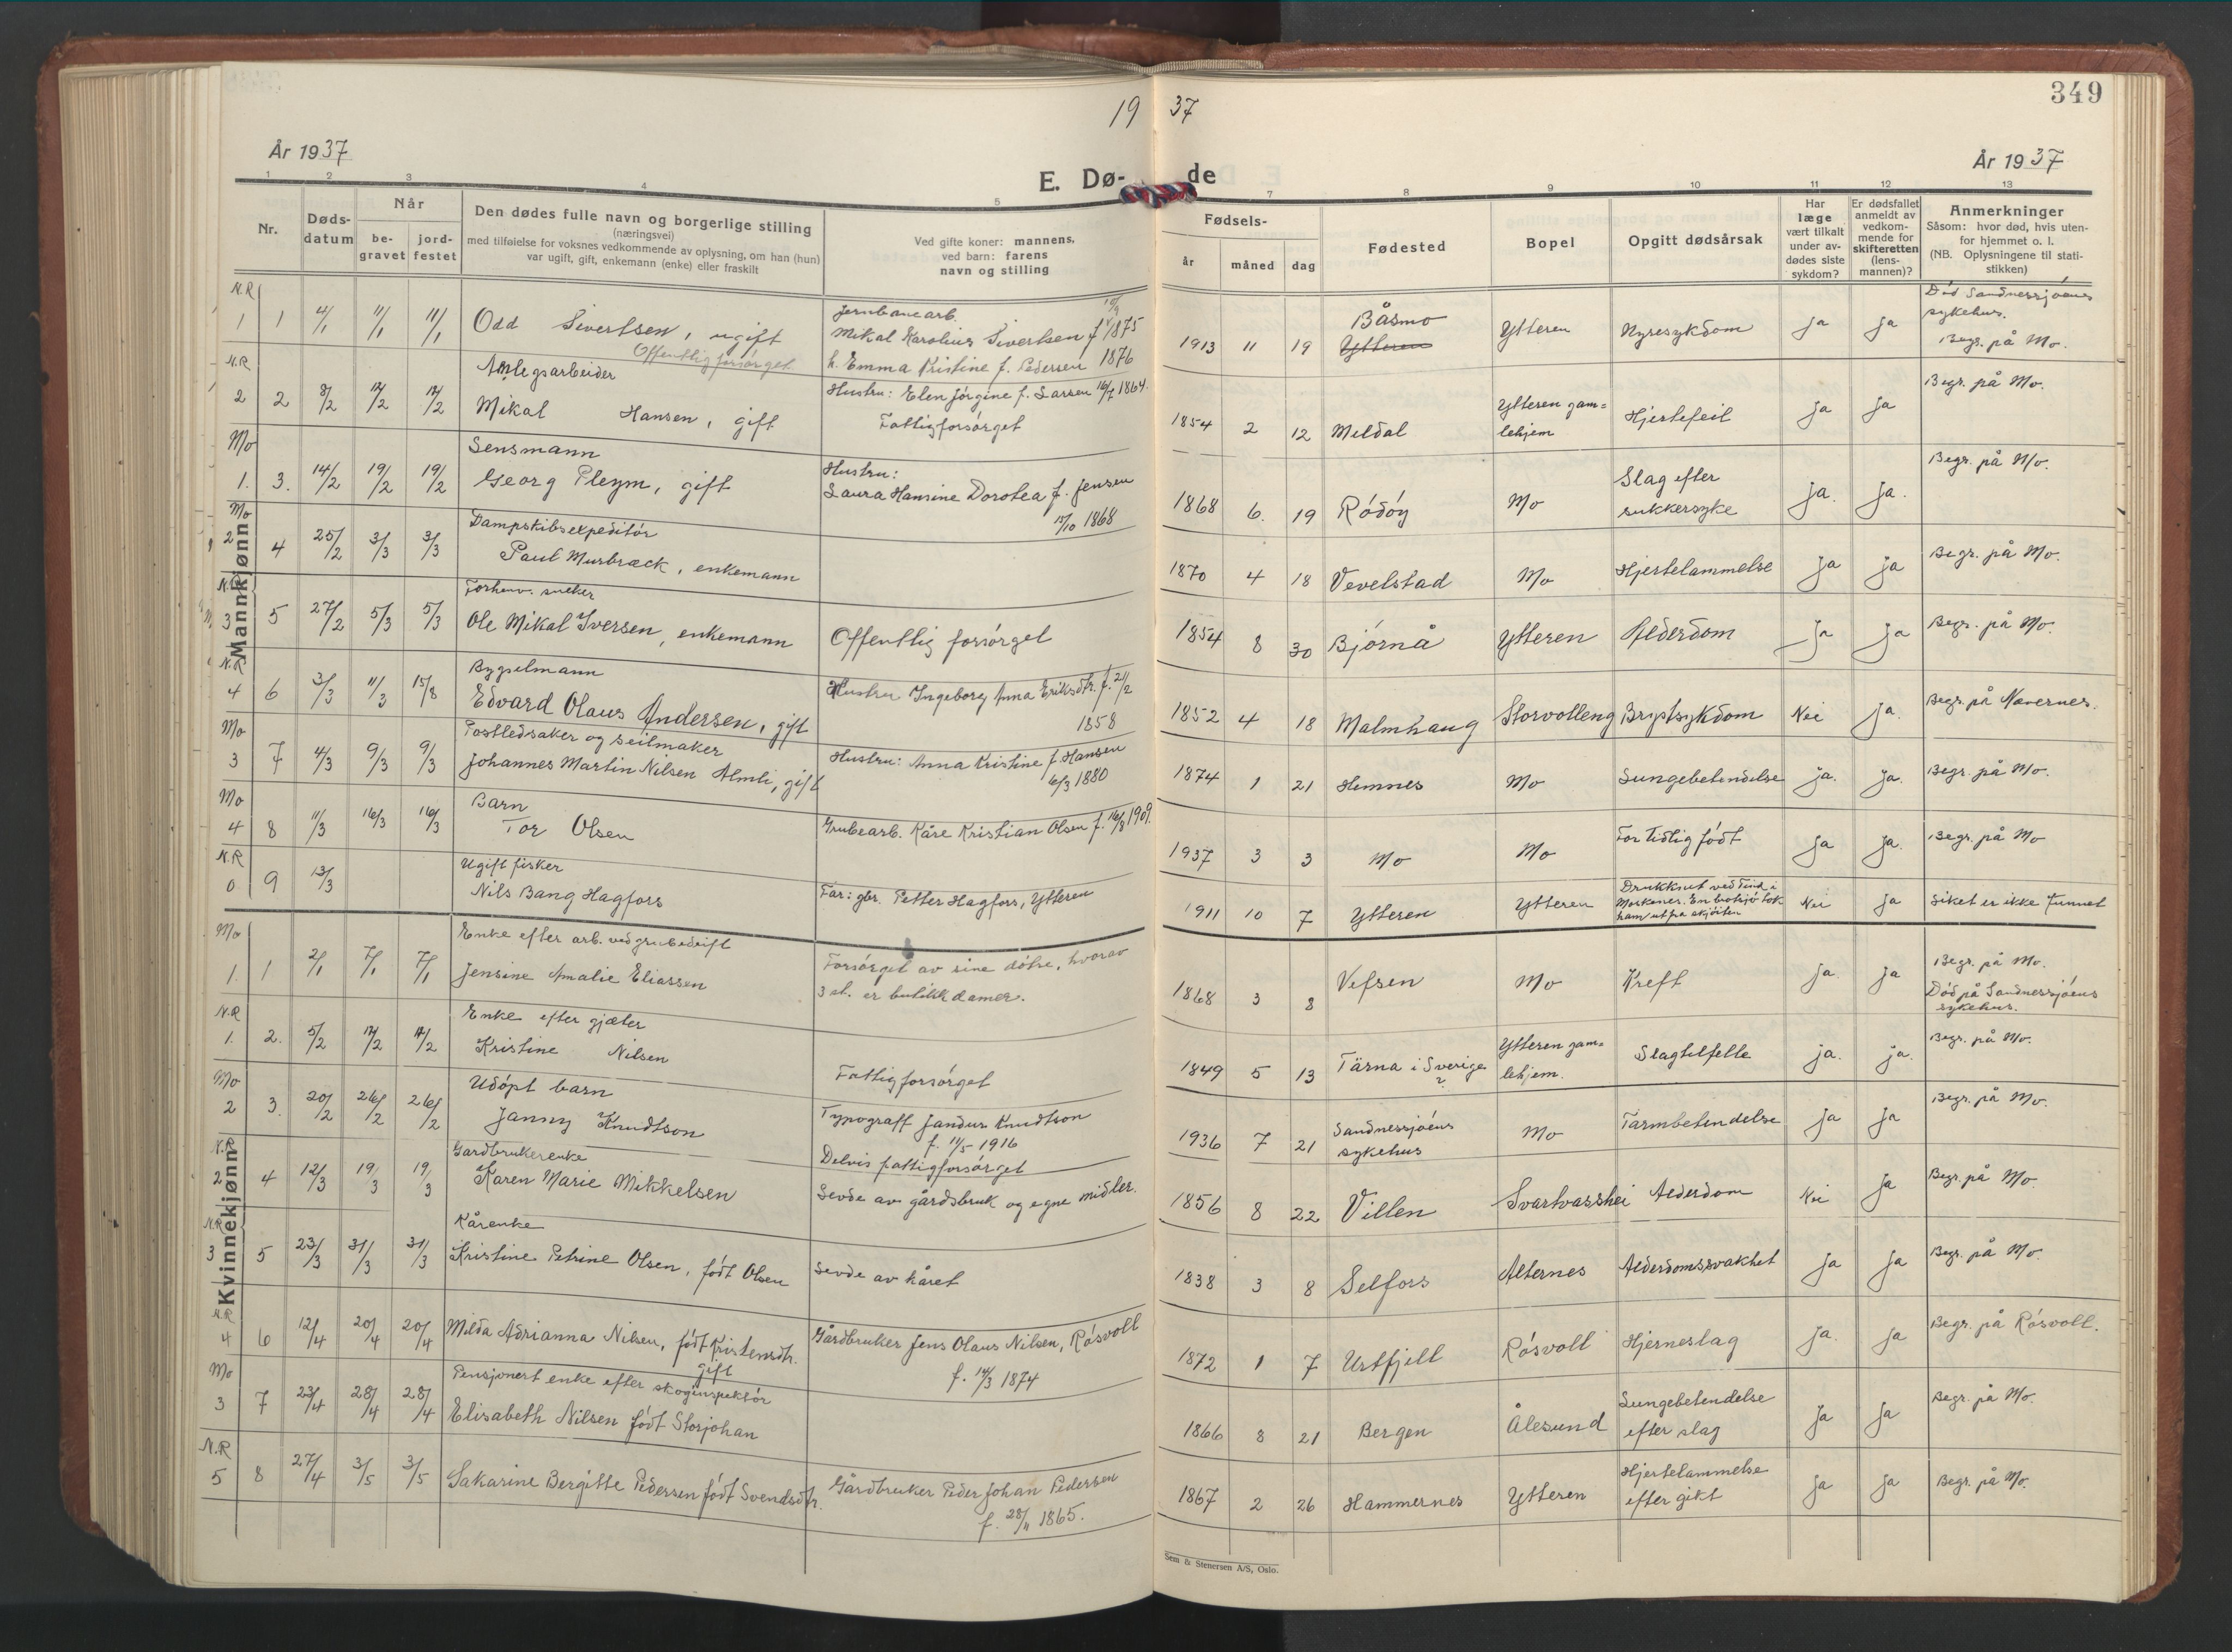 349
19 37
År 1937
År 1937
E. Dø- de
1 2 3 4 5 7 8 9 10 11 12 13
Nr.
Døds-datum
Når
be-gravet
jord-festet
Den dødes fulle navn og borgerlige stilling
(næringsvei)
med tilføielse for voksnes vedkommende av oplysning, om han (hun)
var ugift, gift, enkemann (enke) eller fraskilt
Ved gifte koner: mannens,
ved barn: farens
navn og stilling
Fødsels-
år måned dag
Fødested
Bopel
Opgitt dødsårsak
Har læge vært tilkalt under av-dødes siste sykdom?
Er dødsfallet anmeldt av vedkom-mende for skifteretten (lens-mannen)?
Anmerkninger
Såsom: hvor død, hvis uten-for hjemmet o. l.
(NB. Oplysningene til stati-stikken)
Mannkjønn
N.R
1 1 4/1 11/1 11/1 Odd Sivertsen, ugift
Offentlig forsørget
Jernbanearb.
Mikal Karolius Sivertsen f. 1875
h. Emma Kristine f. Pedersen 1876
1913 11 19 Båsmo Ytteren Ytteren Nyresykdom ja ja Død Sandnessjøens sykehus. Begr. på Mo.
N.R
2 2 8/2 12/2 12/2 Anlegsarbeider
Mikal Hansen, gift
Hustru: Elen Jørgine f. Larsen 16/7 1864.
Fattigforsørget
1854 2 12 Meldal Ytteren gam=lehjem Hjertefeil ja ja Begr. på Mo.
Mo
1. 3. 14/2 19/2 19/2 Lensmann
Georg Pleym, gift
Hustru:
Laura Hansine Dorotea f. Jensen
15/10 1868
1868 6. 19 Rødøy Mo Slag efter sukkersyke ja. ja. Begr. på Mo.
Mo
2 4 25/2 3/3 3/3 Dampskibsexpeditør
Paul Musbræck, enkemann
1870 4 18 Vevelstad Mo Hjertelammelse ja ja Begr. på Mo.
N.R
3 5 27/2 5/3 5/3 Forhenv. snekker
Ole Mikal Iversen, enkemann
Offentlig forsørget
1854 8 30 Bjørnå Ytteren Alderdom ja ja Begr. på Mo.
N.R
4 6 3/3 11/3 15/8 Bygselmann
Edvard Olaus Andersen, gift
Hustru Ingeborg Anna Eriksdtr. f. 21/2
1858
1852 4 18 Malmhaug Storvolleng Brystsykdom Nei ja. Begr. på Nævernes.
Mo
3 7 4/3 9/3 9/3 Postledsaker og seilmaker
Johannes Martin Nilsen Almli, gift
Hustru: Anna Kristine f. Hansen
6/3 1880
1874 1 21 Hemnes Mo Lungebetendelse ja. ja. Begr. på Mo.
Mo
4 8 11/3 16/3 16/3 Barn
Tor Olsen
Grubearb. Kåre Kristian Olsen f. 16/8 1909.
1937 3 3 Mo Mo For tidlig født ja ja. Begr. på Mo
N.R
0 9 13/3 Ugift fisker
Nils Bang Hagfors
Far: gbr. Petter Hagfors, Ytteren
1911 10 7 Ytteren Ytteren Drukknet ved Tind i Moskenes. En brotsjø tok ham ut fra skjøiten Nei ja Liket er ikke funnet
Kvinnekjønn
Mo
1. 1 2/1 7/1 7/1 Enke efter arb. ved grubedrift
Jensine Amalie Eliassen
Forsørget av sine døtre, hvorav
3 st. er butikkdamer.
1868 3 8 Vefsen Mo Kreft ja. ja Begr. på Mo. Død på Sandnessjøens sykehus.
N.R
1. 2. 5/2 12/2 12/2 Enke efter gjæter
Kristine Nilsen
Fattigforsørget
1849 5 13 Tärna i Sverige ? Ytteren gam=lehjem. Slagtilfelle ja. ja. Begr. på Mo.
Mo
2 3. 20/2 26/2 26/2 Udøpt barn
Janny Knudtson
Typograff Jandus Knudtson
f. 11/5 1916
1936 7 21 Sandnessjøens sykehus Mo Tarmbetendelse ja ja Begr. på Mo.
N.R
2 4 12/3 19/3 19/3 Gardbrukerenke
Karen Marie Mikkelsen
Delvis fattigforsørget
Levde av gårdsbruk og egne midler.
1856 8 22 Villen Svartvasshei Alderdom Nei ja Begr. på Mo
N.R
3 5 23/3 31/3 31/3 Kårenke
Kristine Petrine Olsen, født Olsen
Levde av kåret
1838 3 8 Selfors Alternes Alderdomssvakhet ja ja Begr. på Mo.
N.R
4 6 12/4 20/4 20/4 Milda Adrianna Nilsen, født Kristensdtr.
gift
Gårdbruker Jens Olaus Nilsen, Røsvoll
f. 14/3 1874
1872 1 7 Urtfjell Røsvoll Hjerneslag ja. ja Begr. på Røsvoll.
Mo
3 7 23/4 28/4 28/4 Pensjonert enke efter skoginspektør
Elisabeth Nilsen født Storjohan
1866 8 21 Bergen Ålesund Lungebetendelse efter slag ja ja Begr. på Mo.
N.R
5 8 27/4 3/5 3/5 Sakarine Bergitte Pedersen født Svendsdtr.
Gårdbruker Peder Johan Pedersen
f. 28/11 1865.
1867 2 26 Hammernes Ytteren Hjertelammelse efter gikt ja ja Begr. på Mo.
Sem & Stenersen A/S, Oslo.